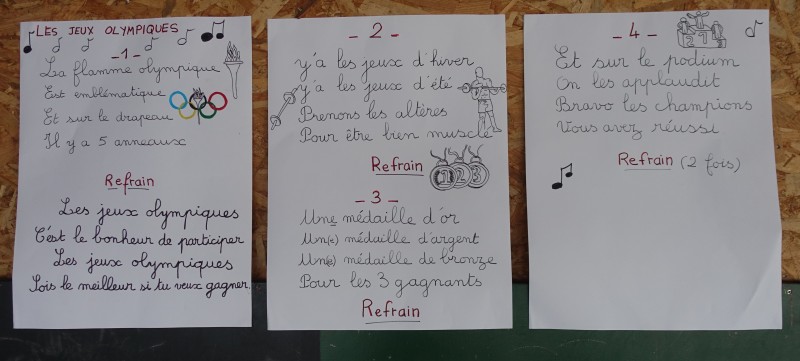 LES JEUX OLYMPIQUES
- 1 -
La flamme olympique
Est emblématique
Et sur le drapeau
Il y a 5 anneaux
Refrain
Les jeux olympiques
C'est le bonheur de participer
Les jeux olympiques
Sois le meilleur si tu veux gagner
- 2 -
y'a les jeux d'hiver
y'a les jeux d'été
Prenons les altères
Pour être bien musclé
Refrain
1 2 3
- 3 -
Une médaille d'or
Un(e) médaille d'argent
Un(e) médaille de bronze
Pour les 3 gagnants
Refrain
- 4 -
2 1
Et sur le podium
On les applaudit
Bravo les champions
Vous avez réussi
Refrain (2 fois)